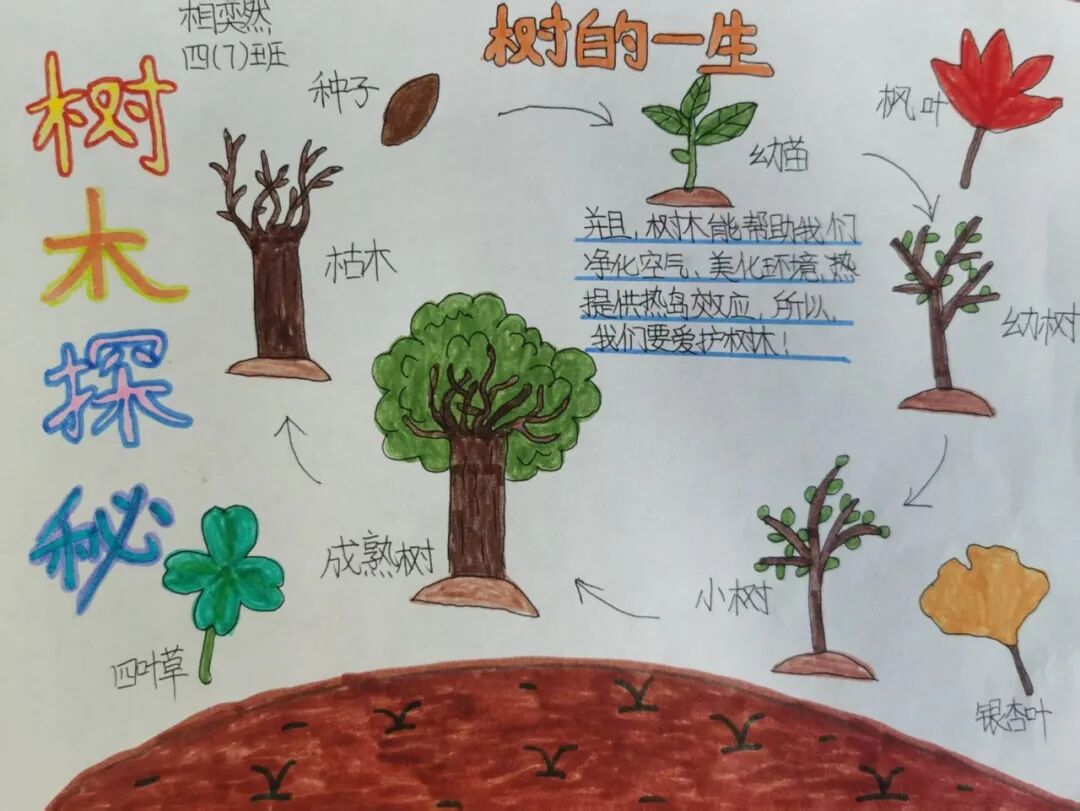 相奕然
四(7)班
树木探秘
树的一生
种子
幼苗
枫叶
枯木
并且,树木能帮助我们
净化空气、美化环境、热
提供热岛效应,所以,
我们要爱护树木!
幼树
成熟树
小树
四叶草
银杏叶